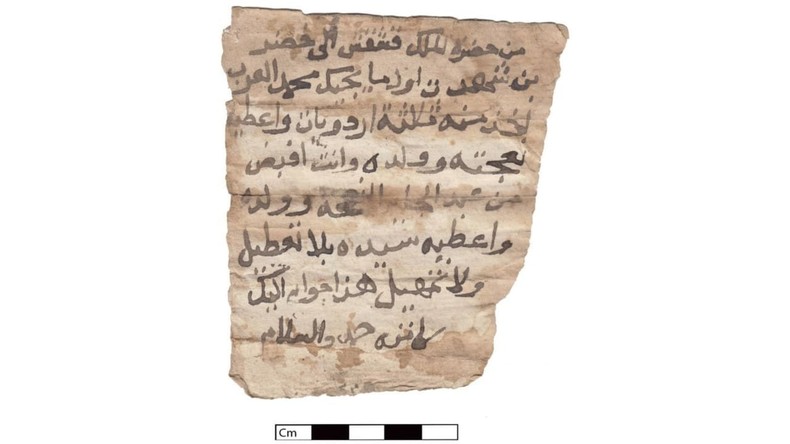 من حضرة الملك قشقش الى خضر
بن شهدت اول ما يجيك محمد العرب
تاخذ منه ثلاثة اردويات واعطيه
نعجته وولده وانت اقبض
من عبد الجابر النعجة وولده
واعطيه سيده بلا تعطيل
ولا تمهيل هذا جوابي اليك
حمد والسلام
Cm